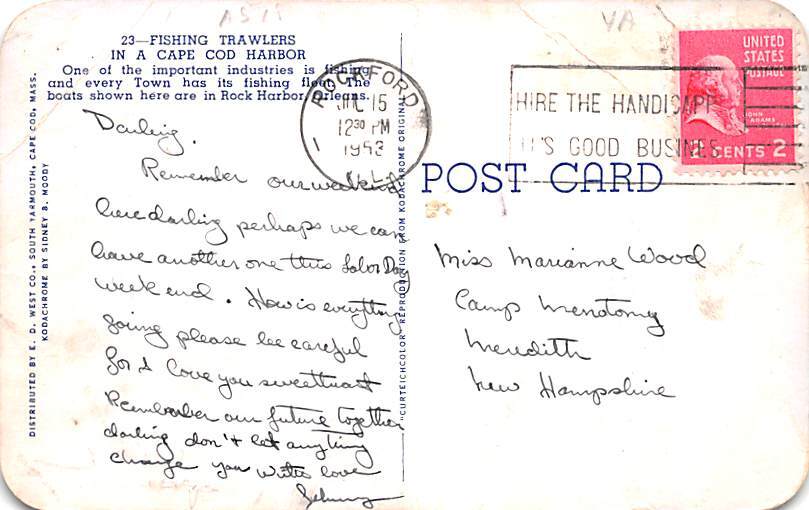 A519
VA
23—FISHING TRAWLERS
IN A CAPE COD HARBOR
One of the important industries is fishing
and every Town has its fishing fleet. The
boats shown here are in Rock Harbor, Orleans.
DISTRIBUTED BY E. D. WEST CO., SOUTH YARMOUTH, CAPE COD, MASS.
KODACHROME BY SIDNEY B. MOODY
"CURTEICHCOLOR" REPRODUCTION FROM KODACHROME ORIGINAL
ROCKFORD
JUL 15
12 30 PM
1953
ILL.
HIRE THE HANDICAPPED
IT'S GOOD BUSINESS
UNITED
STATES
POSTAGE
JOHN
ADAMS
2 CENTS 2
POST CARD
Darling,
Remember our weekend
here darling perhaps we can
have another one this Labor Day
week end. How is everything
going please be careful
for I love you sweetheart
Remember our future together
darling don't let anything
change you with love
Miss Marianne Wood
Camp Menotomy
Meredith
New Hampshire